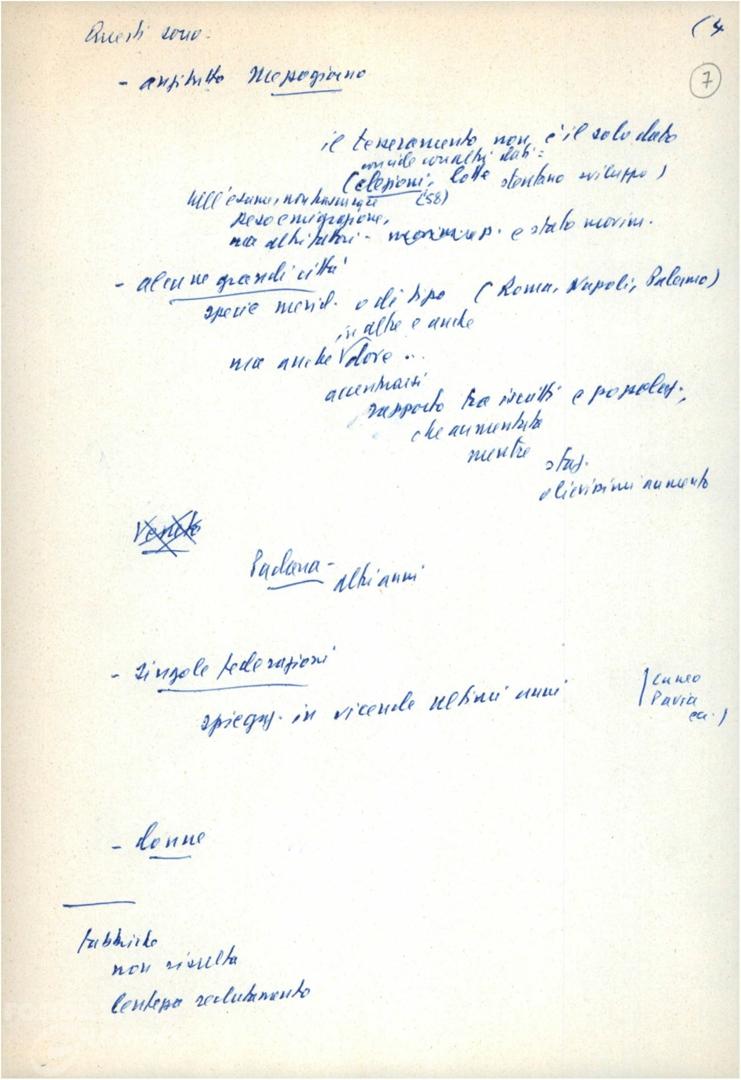 Questi sono: (4
7
- anzitutto Mezzogiorno
il tesseramento non è il solo dato
coincide con altri dati:
(elezioni, lotte stentano sviluppo)
nell'esame, non trascurare ('58)
peso emigrazione,
ma altri fattori - e stato movim.
- alcune grandi città
specie merid. o di tipo (Roma, Napoli, Palermo)
in altre e anche
ma anche dove ...
accentuarsi
rapporto tra iscritti e popolaz.,
che aumentata
mentre
staz.
o lievissimi aumento
Veneto
Padana -
altri anni
- singole federazioni
spiegaz. in vicende ultimi anni
(Cuneo
Pavia
ecc.)
- donne
fabbriche
non risulta
lentezza reclutamento